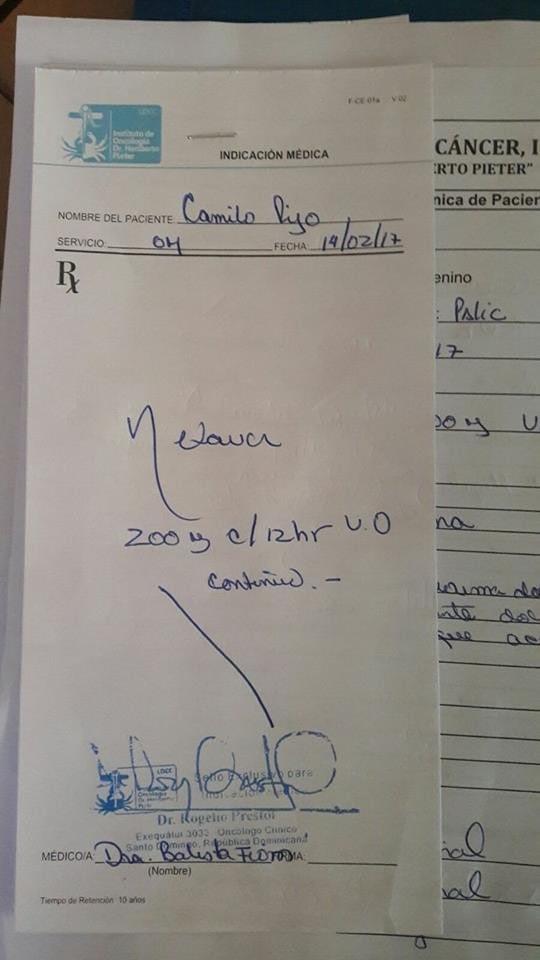 F-CE-01a V.02
LDCC
Instituto de
Oncología
Dr. Heriberto
Pieter
INDICACIÓN MÉDICA
NOMBRE DEL PACIENTE Camilo
SERVICIO: OH FECHA: 14/02/17
Rx
Nexavar
200 mg c/12hr V.O
continuo.-
Sello Exclusivo para
Dr. Rogelio Prestol
Exequátur 3033 Oncólogo Clínico
Santo Domingo, República Dominicana
MÉDICO/A: Dra. Batista FIRMA:
(Nombre)
Tiempo de Retención 10 años
CÁNCER, I
RTO PIETER"
nica de Pacien
enino
: Pslic
17